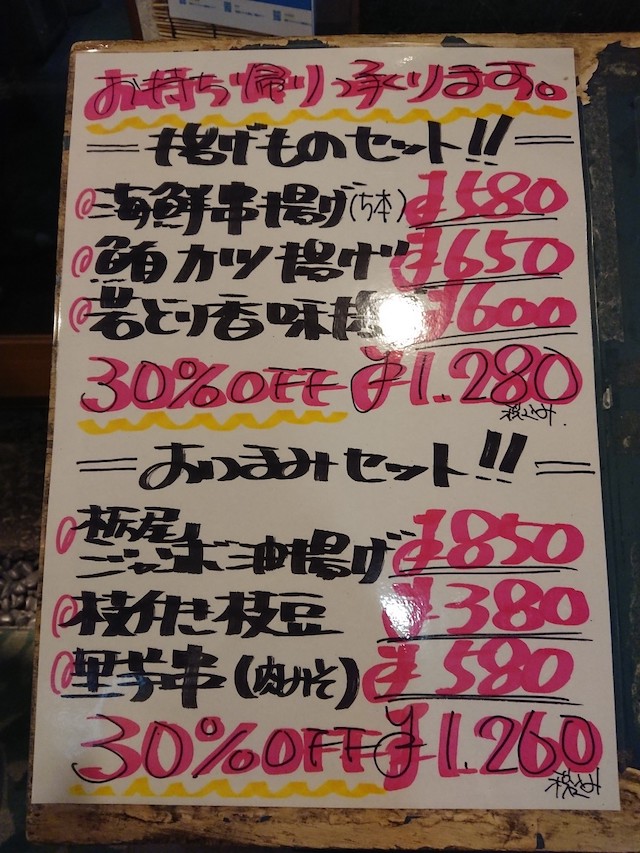 お持ち帰り承ります。
揚げものセット!!
海鮮串揚げ(5本) ¥580
鮪カツ揚げ ¥650
若どり香味揚 ¥600
30%OFF ¥1.280
税込み
おつまみセット!!
栃尾
ジャンボ油揚げ ¥850
枝付き枝豆 ¥380
里芋串(肉みそ) ¥580
30%OFF ¥1.260
税込み